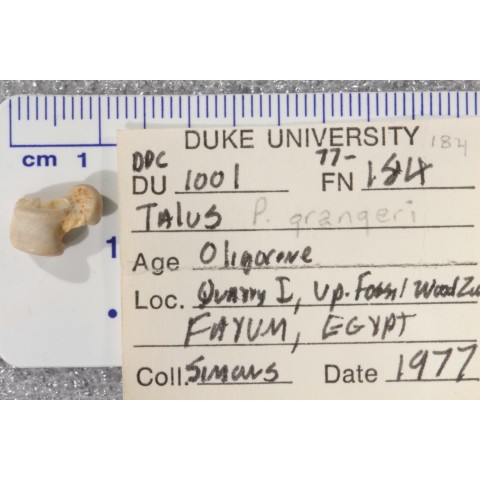 cm 1
1
DUKE UNIVERSITY 184
DPC 77-
DU 1001 FN 184
TALUS P. grangeri
Age Oligocene
Loc. Quarry I, Up. Fossil Wood
FAYUM, EGYPT
Coll. Simons Date 1977